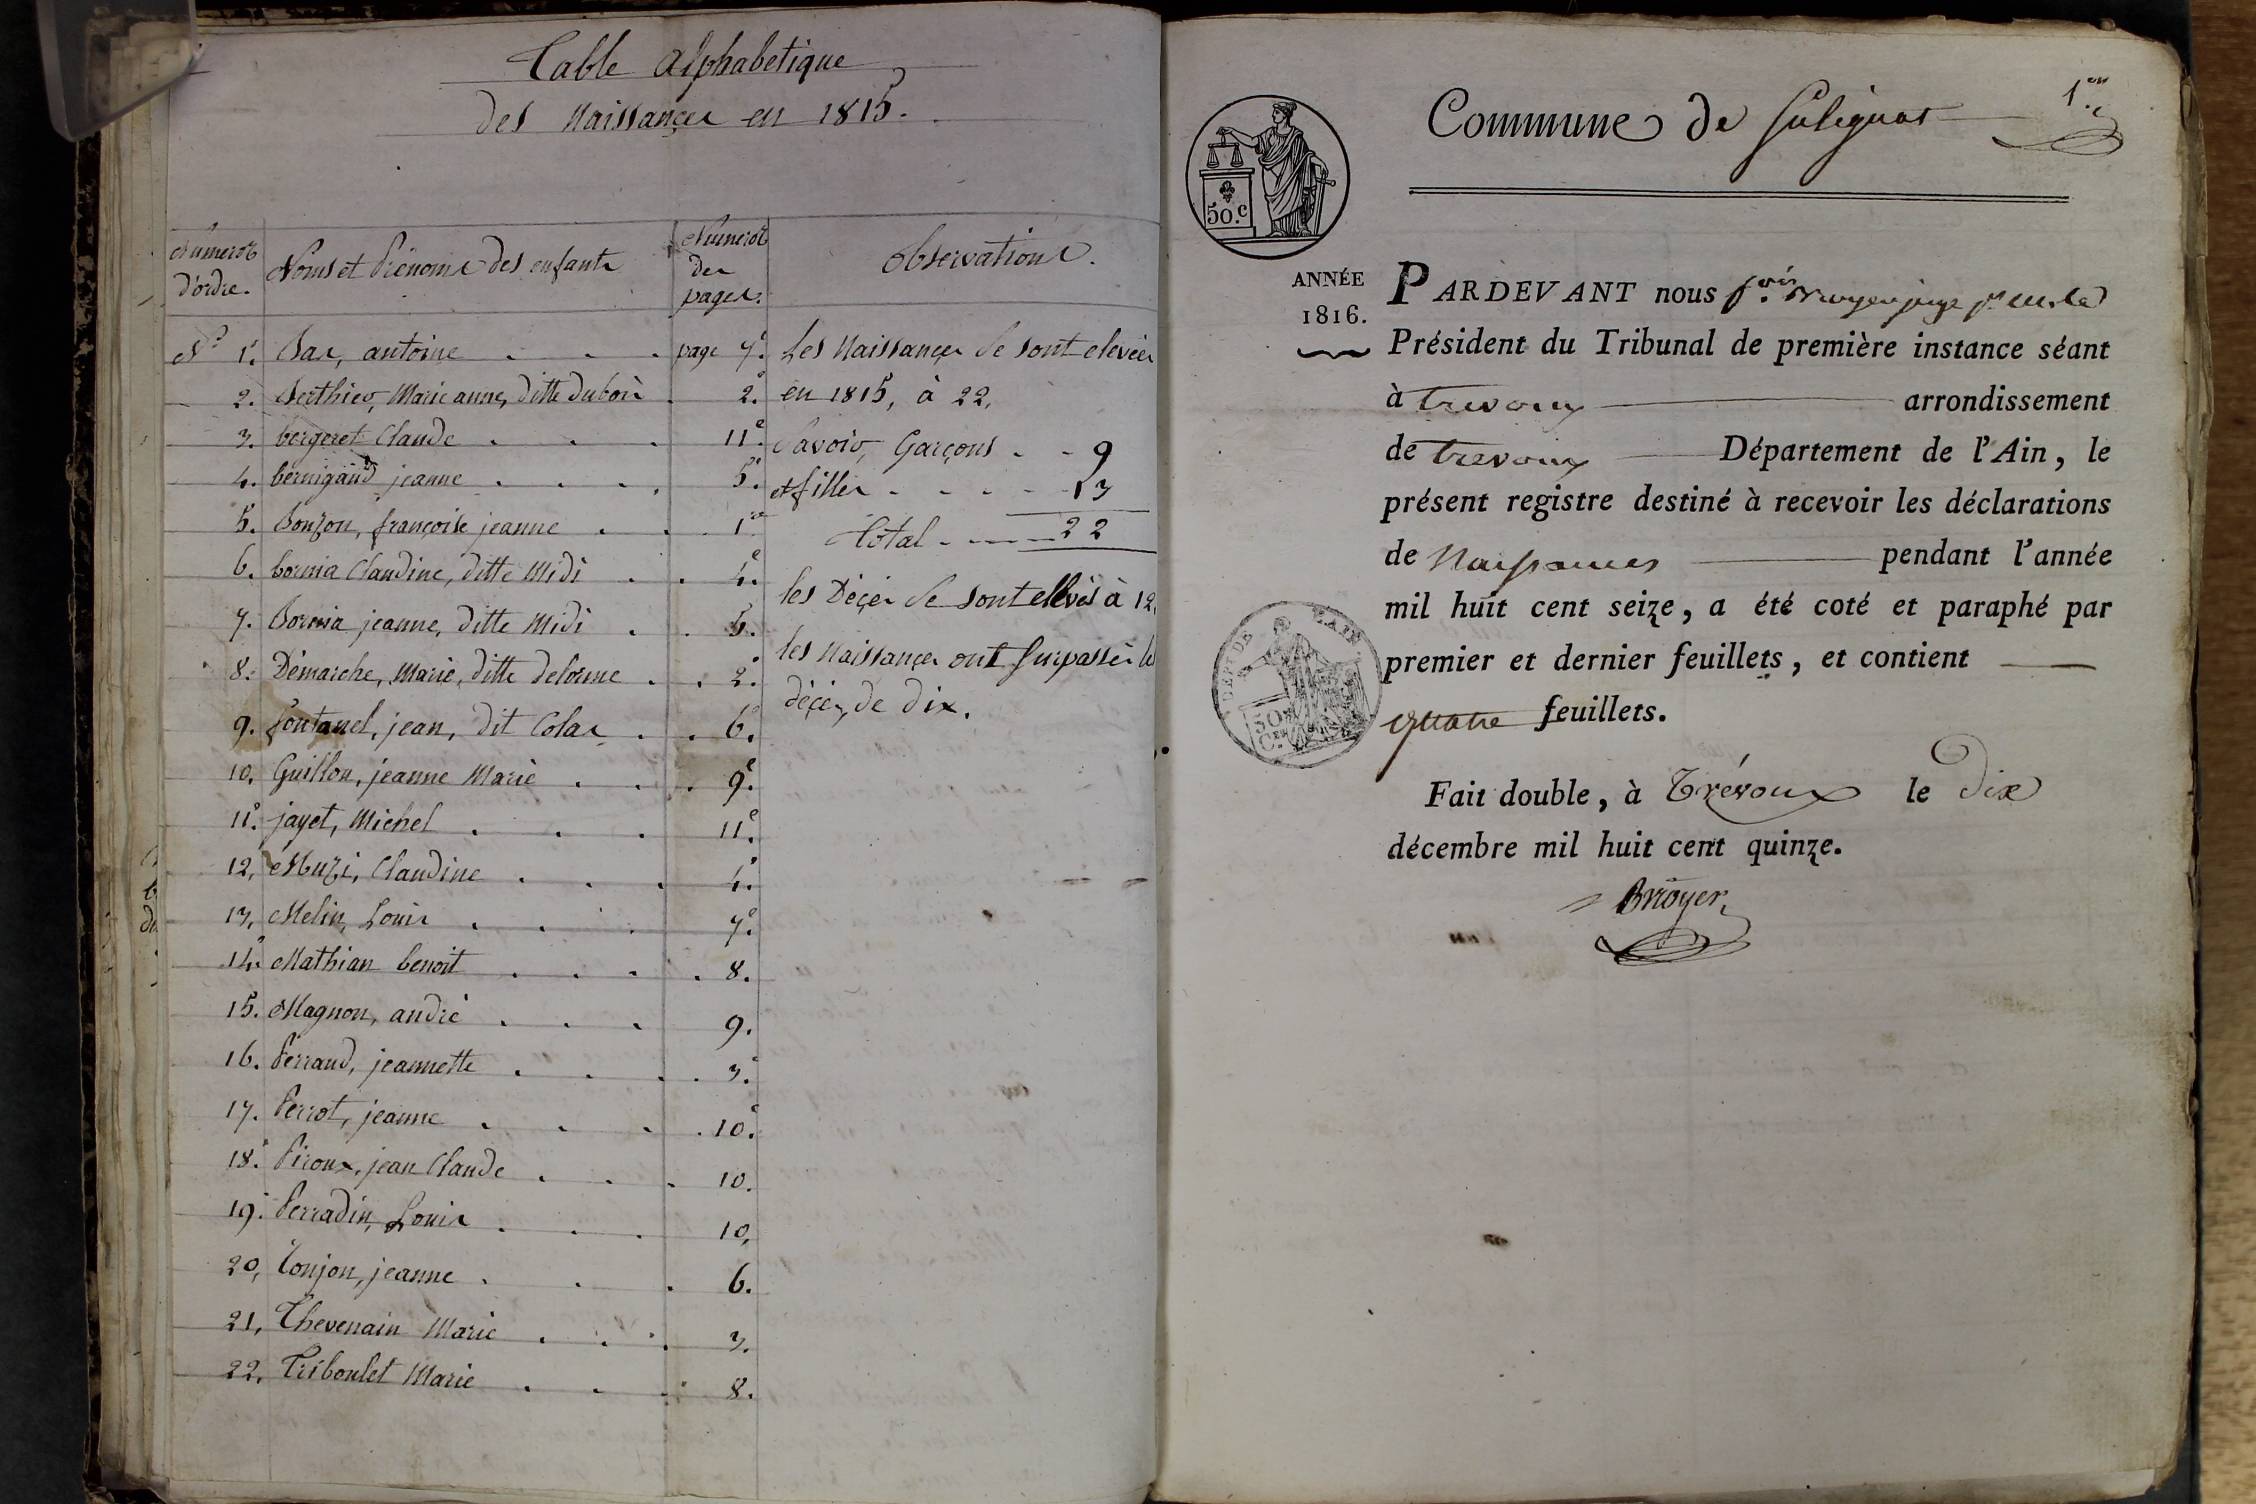 Table alphabétique
des Naissances en 1815.
Numeros d'ordre.
Noms et Prénoms des enfants
Numeros des pages.
Observations.
N.º 1. Bas, antoine . . . page 7.e
2. Berthier, Marie anne, ditte dubois . 2.e
3. bergeret Claude . . . 11.e
4. bernigaud jeanne . . . . 5.e
5. Bonzon, françoise jeanne . . 1.re
6. bornia Claudine, ditte Midi . . 4.e
7. Bornia jeanne, ditte Midi . . 5.
8. Démarche, Marie, ditte delorme . . 2.e
9. fontanel, jean, dit Colas . . 6.e
10. Guillon, jeanne Marie . . . 9.e
11. jayet, Michel . . . 11.e
12. Muzi, Claudine . . . 4.e
13. Melin, Louis . . . 7.e
14. Mathian benoit . . . . 8.
15. Magnon, andré . . . 9.
16. Perraud, jeannette . . . . 3.e
17. Perrot, jeanne . . . . 10.e
18. Piroux, jean Claude . . . 10.
19. Perradin, Louis . . . 10.
20. Tonjon, jeanne . . . 6.
21. Thevenain Marie . . . 3.
22. Triboulet Marie . . . 8.
Les Naissances se sont elevées
en 1815, à 22,
Savoir, Garçons . . 9
et filles . . . . 13
Total . 22
les Décès se sont ellevés à 12,
les Naissances ont surpassés les
décès, de dix.
Commune de Sulignat
1.er
50.c
ANNÉE
1816.
PARDEVANT nous juge
Président du Tribunal de première instance séant
à trevoux arrondissement
de trevoux Département de l'Ain, le
présent registre destiné à recevoir les déclarations
de Naissances pendant l'année
mil huit cent seize, a été coté et paraphé par
premier et dernier feuillets, et contient
quatre feuillets.
DEPT DE L'AIN
50
C.ES
Fait double, à Trévoux le dix
décembre mil huit cent quinze.